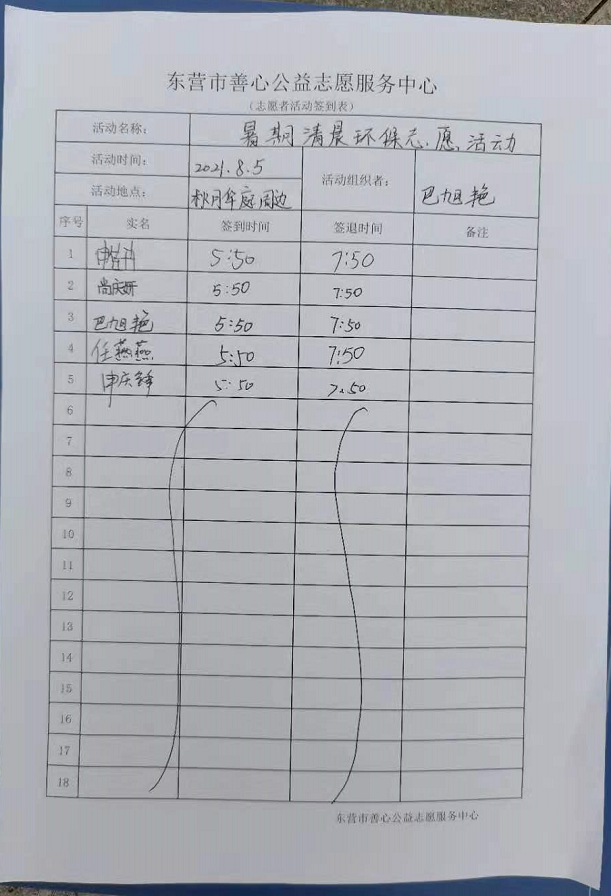 东营市善心公益志愿服务中心
（志愿者活动签到表）
活动名称： 暑期清晨环保志愿活动
活动时间： 2021.8.5 活动组织者： 巴旭艳
活动地点： 秋月华庭周边
序号 实名 签到时间 签退时间 备注
1 5:50 7:50
2 尚庆妍 5:50 7:50
3 巴旭艳 5:50 7:50
4 任燕燕 5:50 7:50
5 申庆锋 5:50 7:50
6
7
8
9
10
11
12
13
14
15
16
17
18
东营市善心公益志愿服务中心